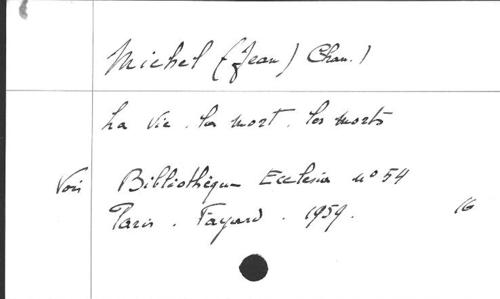 Michel (Jean) Chan.)
La vie. la mort. les morts
Voir Bibliothèque Ecclesia n° 54
Paris. Fayard. 1959. 16